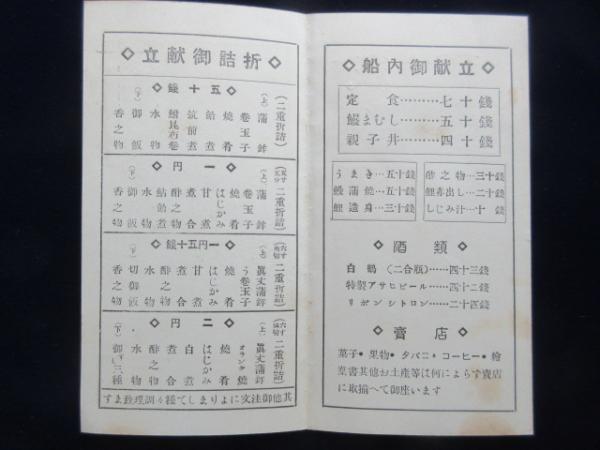 ◇船内御献立◇
定食………七十錢
鰻まむし……五十錢
親子丼………四十錢
うまき…五十錢
鰻蒲燒…五十錢
鯉造身…三十錢
酢之物…三十錢
鯉赤出し…二十錢
しじみ汁…十錢
◇酒類◇
白鶴(二合瓶)……四十三錢
特製アサヒビール……四十二錢
リボンシトロン……二十四錢
◇賣店◇
菓子・果物・タバコ・コーヒー・繪
葉書其他お土産等は何によらず賣店
に取揃へて御座います
◇折詰御献立◇
◇五十錢◇
(二重折詰)
(上)蒲鉾
卷玉子
燒肴
飴煮
筑前煮
鰊昆布卷
水物
(下)御飯
香之物
◇一円◇
(二重折詰)
(上)蒲鉾
卷玉子
燒肴
はじかみ
甘煮
煮合
酢之物
水物
鮎飴煮
(下)御飯
香之物
◇一円五十錢◇
(二重折詰)
(上)眞丈蒲鉾
う卷玉子
燒肴
はじかみ
甘煮
煮合
酢之物
水物
(下)切御飯
香之物
◇二円◇
(二重折詰)
(上)眞丈蒲鉾
燒肴
はじかみ
白煮
煮合
酢之物
水物
(下)御三種
其他御注文によりまして種々調理致ます